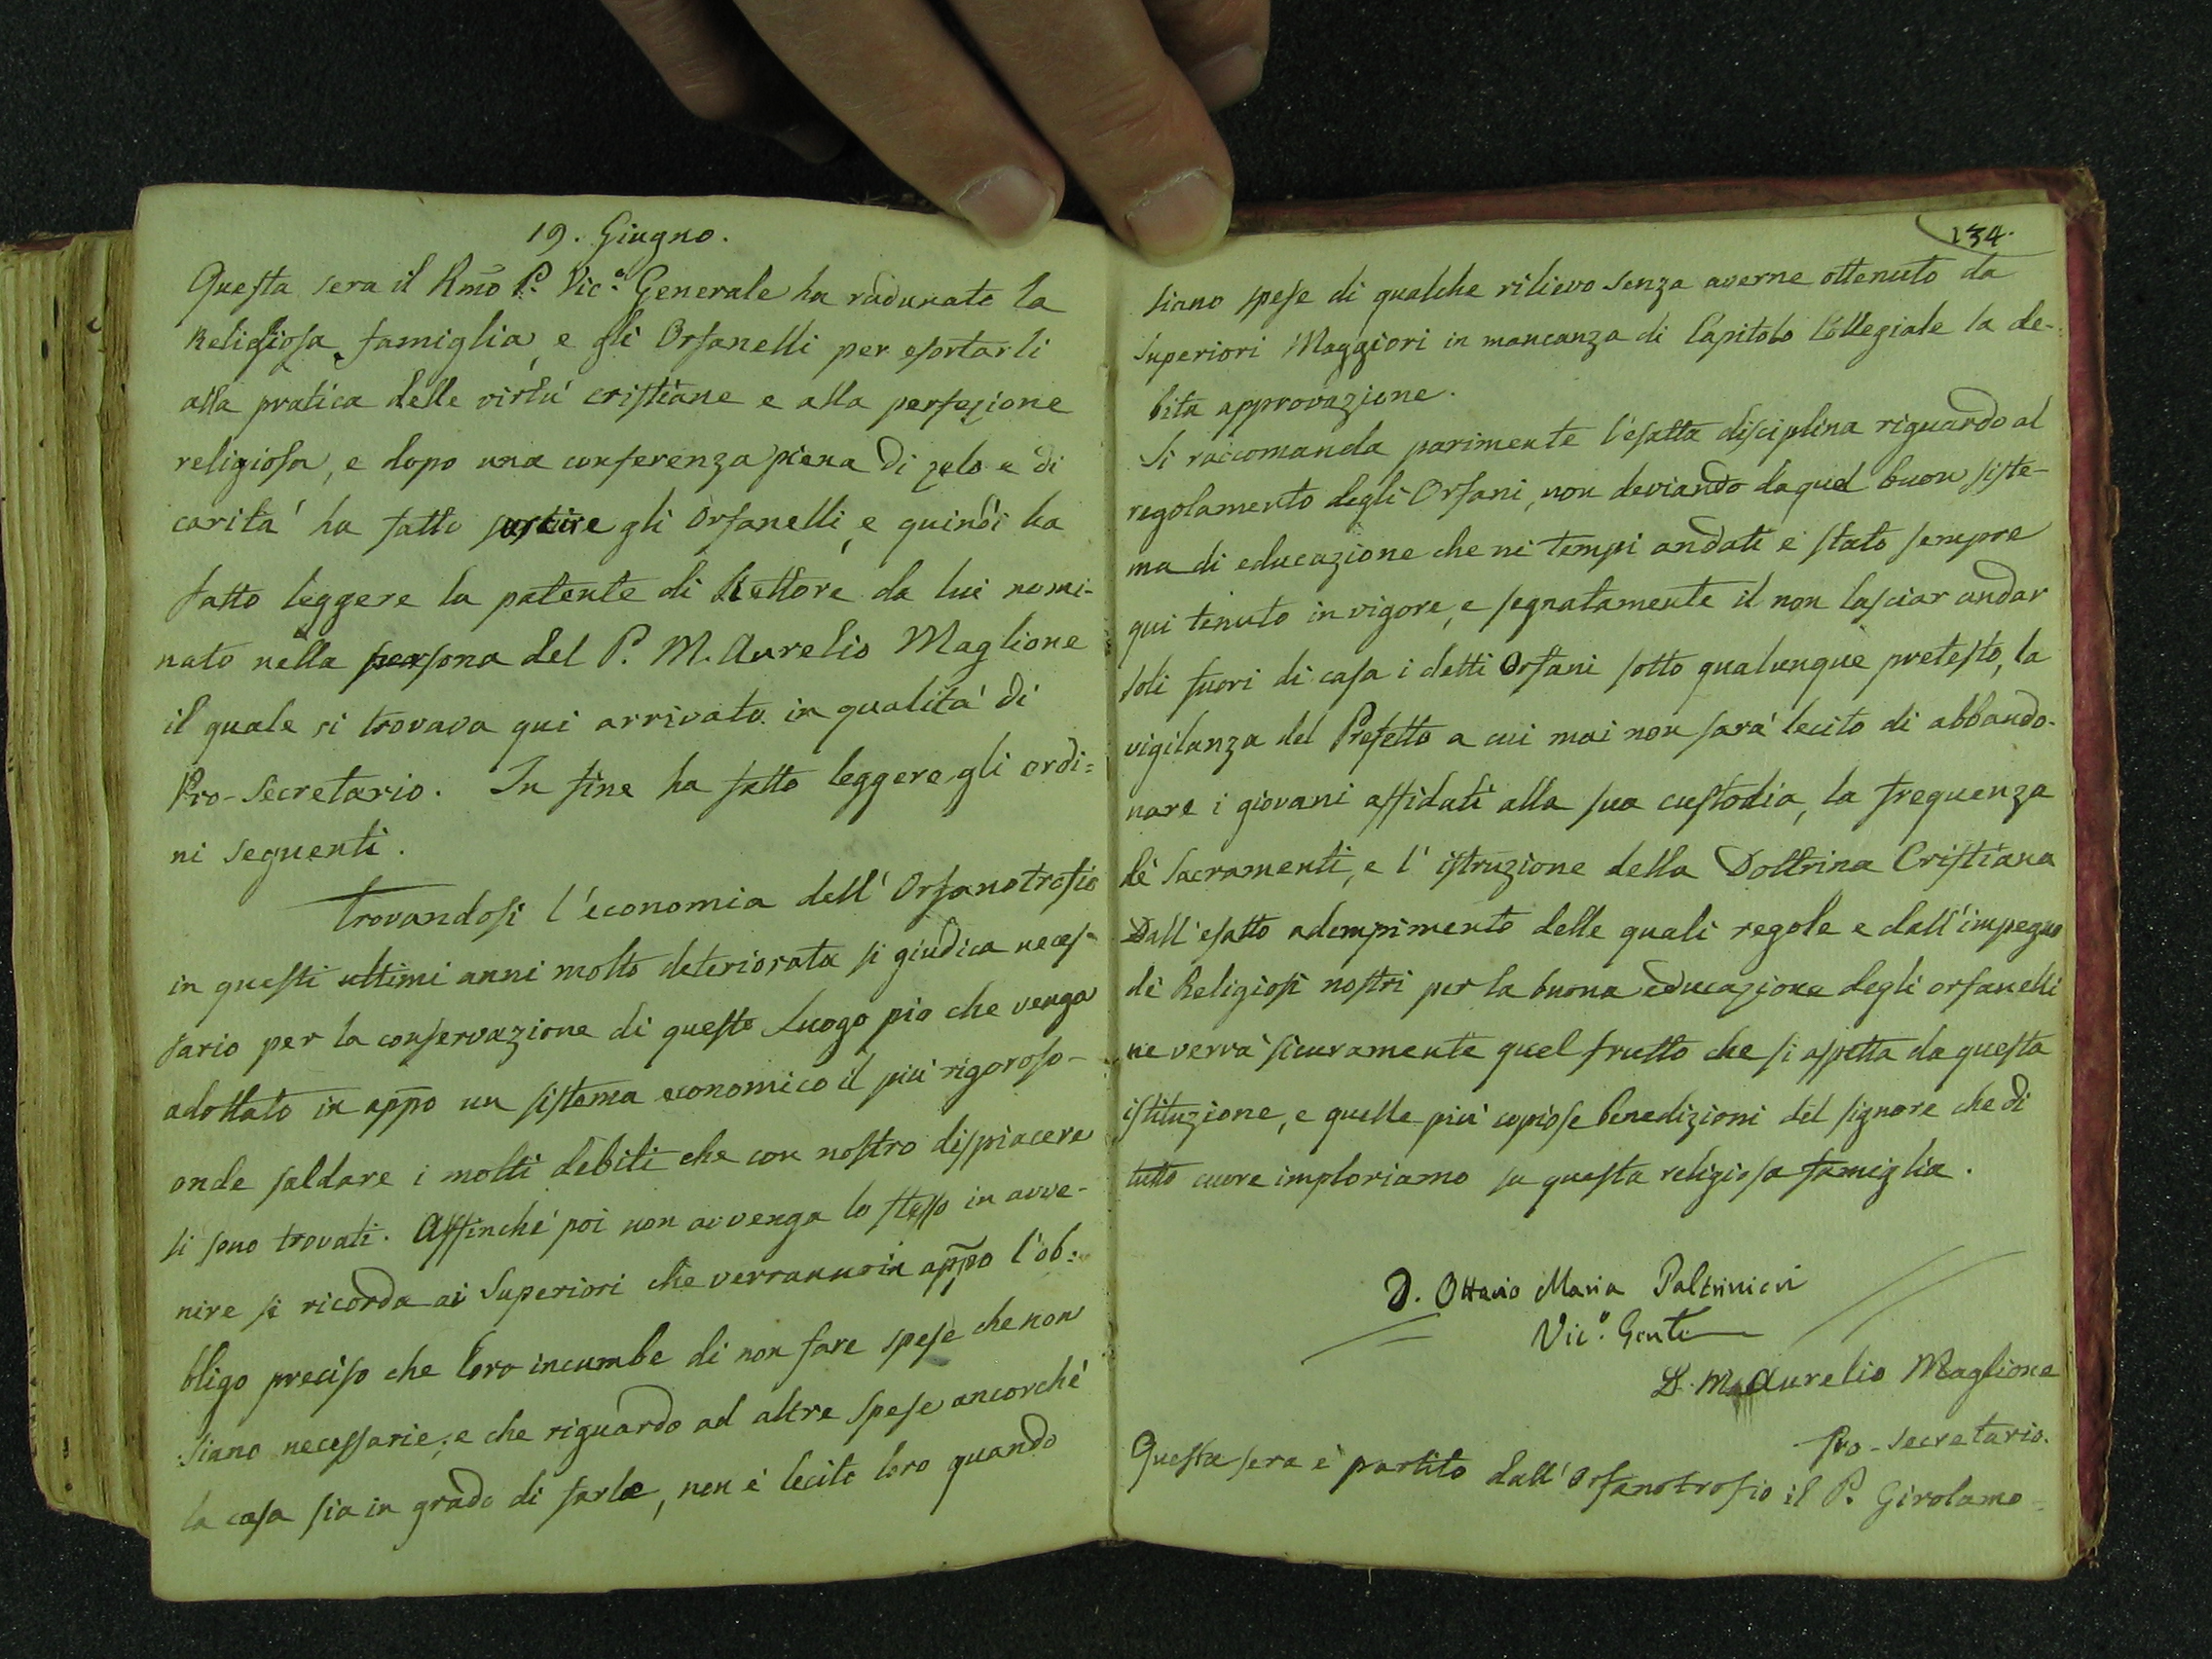 19. Giugno.
Questa sera il Rmo P. Vic.º Generale ha radunato la
Religiosa famiglia, e gli Orfanelli per esortarli
alla pratica delle virtú cristiane e alla perfezione
religiosa, e dopo una conferenza piena di zelo e di
caritá ha fatto sortire gli Orfanelli, e quindi ha
fatto leggere la patente di Rettore da lui nomi-
nato nella persona del P. M. Aurelio Maglione
il quale si trovava qui arrivato in qualitá di
Pro-Secretario. In fine ha fatto leggere gli ordi=
ni seguenti.
Trovandosi l'economia dell' Orfanotrofio
in questi ultimi anni molto deteriorata si giudica neces-
sario per la conservazione di questo Luogo pio che venga
adottato in appo un sistema economico il piú rigoroso-
onde saldare i molti debiti che con nostro dispiacere
si sono trovati. Affinché poi non avvenga lo stesso in avve-
nire si ricorda ai Superiori che verranno in appo l'ob:
bligo preciso che loro incumbe di non fare spese che non
siano necessarie; e che riguardo ad altre spese ancorché
la casa sia in grado di farle, non é lecito loro quando
134.
siano spese di qualche rilievo senza averne ottenuto da
Superiori Maggiori in mancanza di Capitolo Collegiale la de-
bita approvazione.
Si raccomanda parimente l'esatta disciplina riguardo al
regolamento degli Orfani, non deviando da quel buon siste-
ma di educazione che ne tempi andati é stato sempre
qui tenuto in vigore, e segnatamente il non lasciar andar
soli fuori di casa i detti Orfani sotto qualunque pretesto, la
vigilanza del Prefetto a cui mai non sará lecito di abbando-
nare i giovani affidati alla sua custodia, la frequenza
de' Sacramenti, e l' istruzione della Dottrina Cristiana
Dall'esatto adempimento delle quali regole e dall'impegno
de' Religiosi nostri per la buona educazione degli orfanelli
ne verrá sicuramente quel frutto che si aspetta da questa
istituzione, e quelle piú copiose benedizioni del signore che di
tutto cuore imploriamo su questa religiosa famiglia.
D. Ottavio Maria Paltrinieri
Vic.º Gnle
D. M. Aurelio Maglione
Pro-Secretario.
Questa sera é partito dall' Orfanotrofio il P. Girolamo=